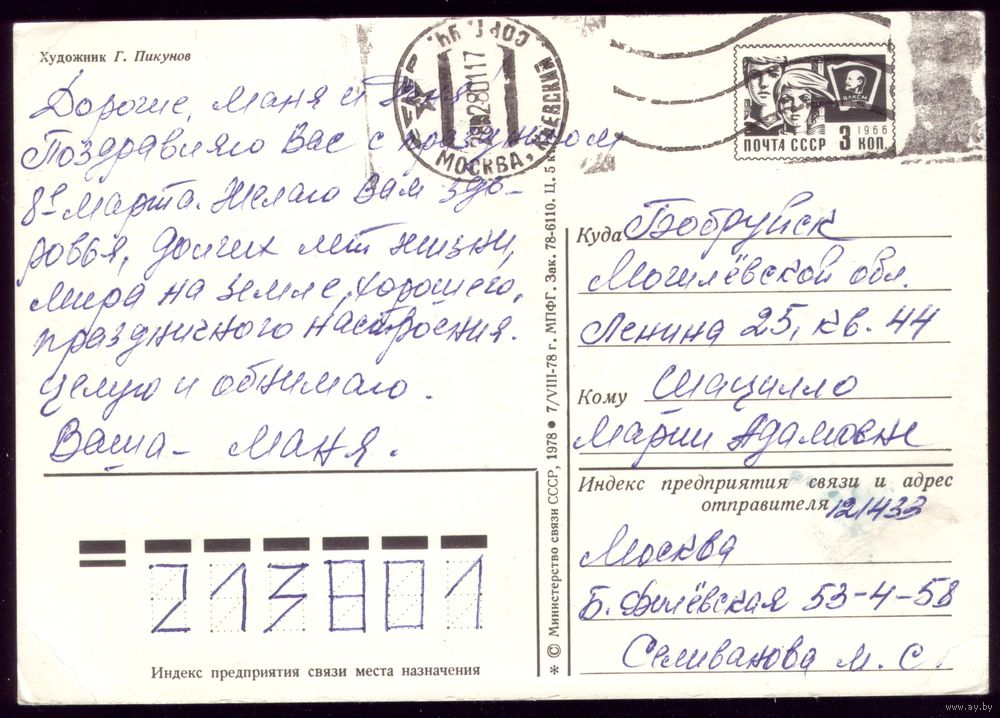 Художник Г. Пикунов
Дорогие, Маня и
Поздравляю Вас с праздником
8е марта. Желаю Вам здо-
ровья, долгих лет жизни,
мира на земле, хорошего,
праздничного настроения.
Целую и обнимаю.
Ваша - Маня.
МОСКВА, КИЕВСКИЙ
ПОЧТА СССР 3 КОП.
1966
ВЛКСМ
Куда Бобруйск
Могилёвской обл.
Ленина 25, кв. 44
Кому Шацилло
Марии Адамовне
Индекс предприятия связи и адрес
отправителя 121433
Москва
Б. Филёвская 53-4-58
Селиванова М. С.
213801
Индекс предприятия связи места назначения
* © Министерство связи СССР, 1978 ● 7/VIII-78 г. МПФГ. Зак. 78-6110. Ц. 5 к
www.ay.by